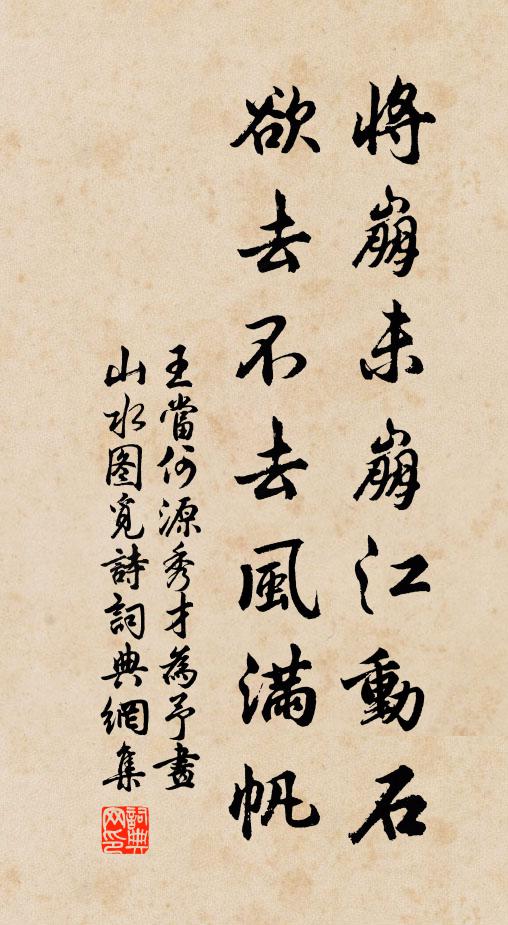 將崩未崩江動石
欲去不去風滿帆
王當何源秀才為予畫
山水图覓詩詞典網集
詞典
网印